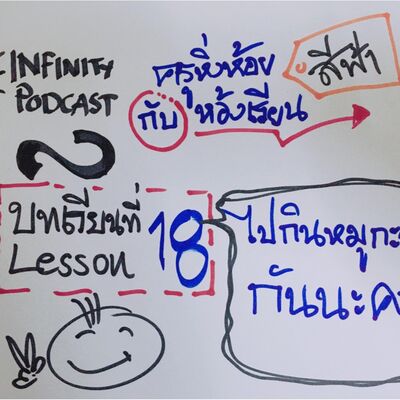 INFINITY
PODCAST
ครูหิ่งห้อย
กับ ห้องเรียน
สีฟ้า
บทเรียนที่ 18
Lesson
ไปกินหมูกะ
กันนะคะ